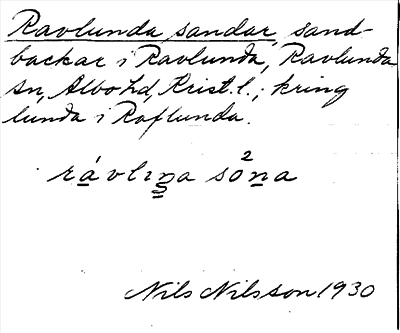 Ravlunda sandar, sand-
backar i Ravlunda, Ravlunda
sn, Albo hd, Krist. l.; kring
lunda i Raflunda.
rávlıṉa so²ṉa
Nils Nilsson 1930